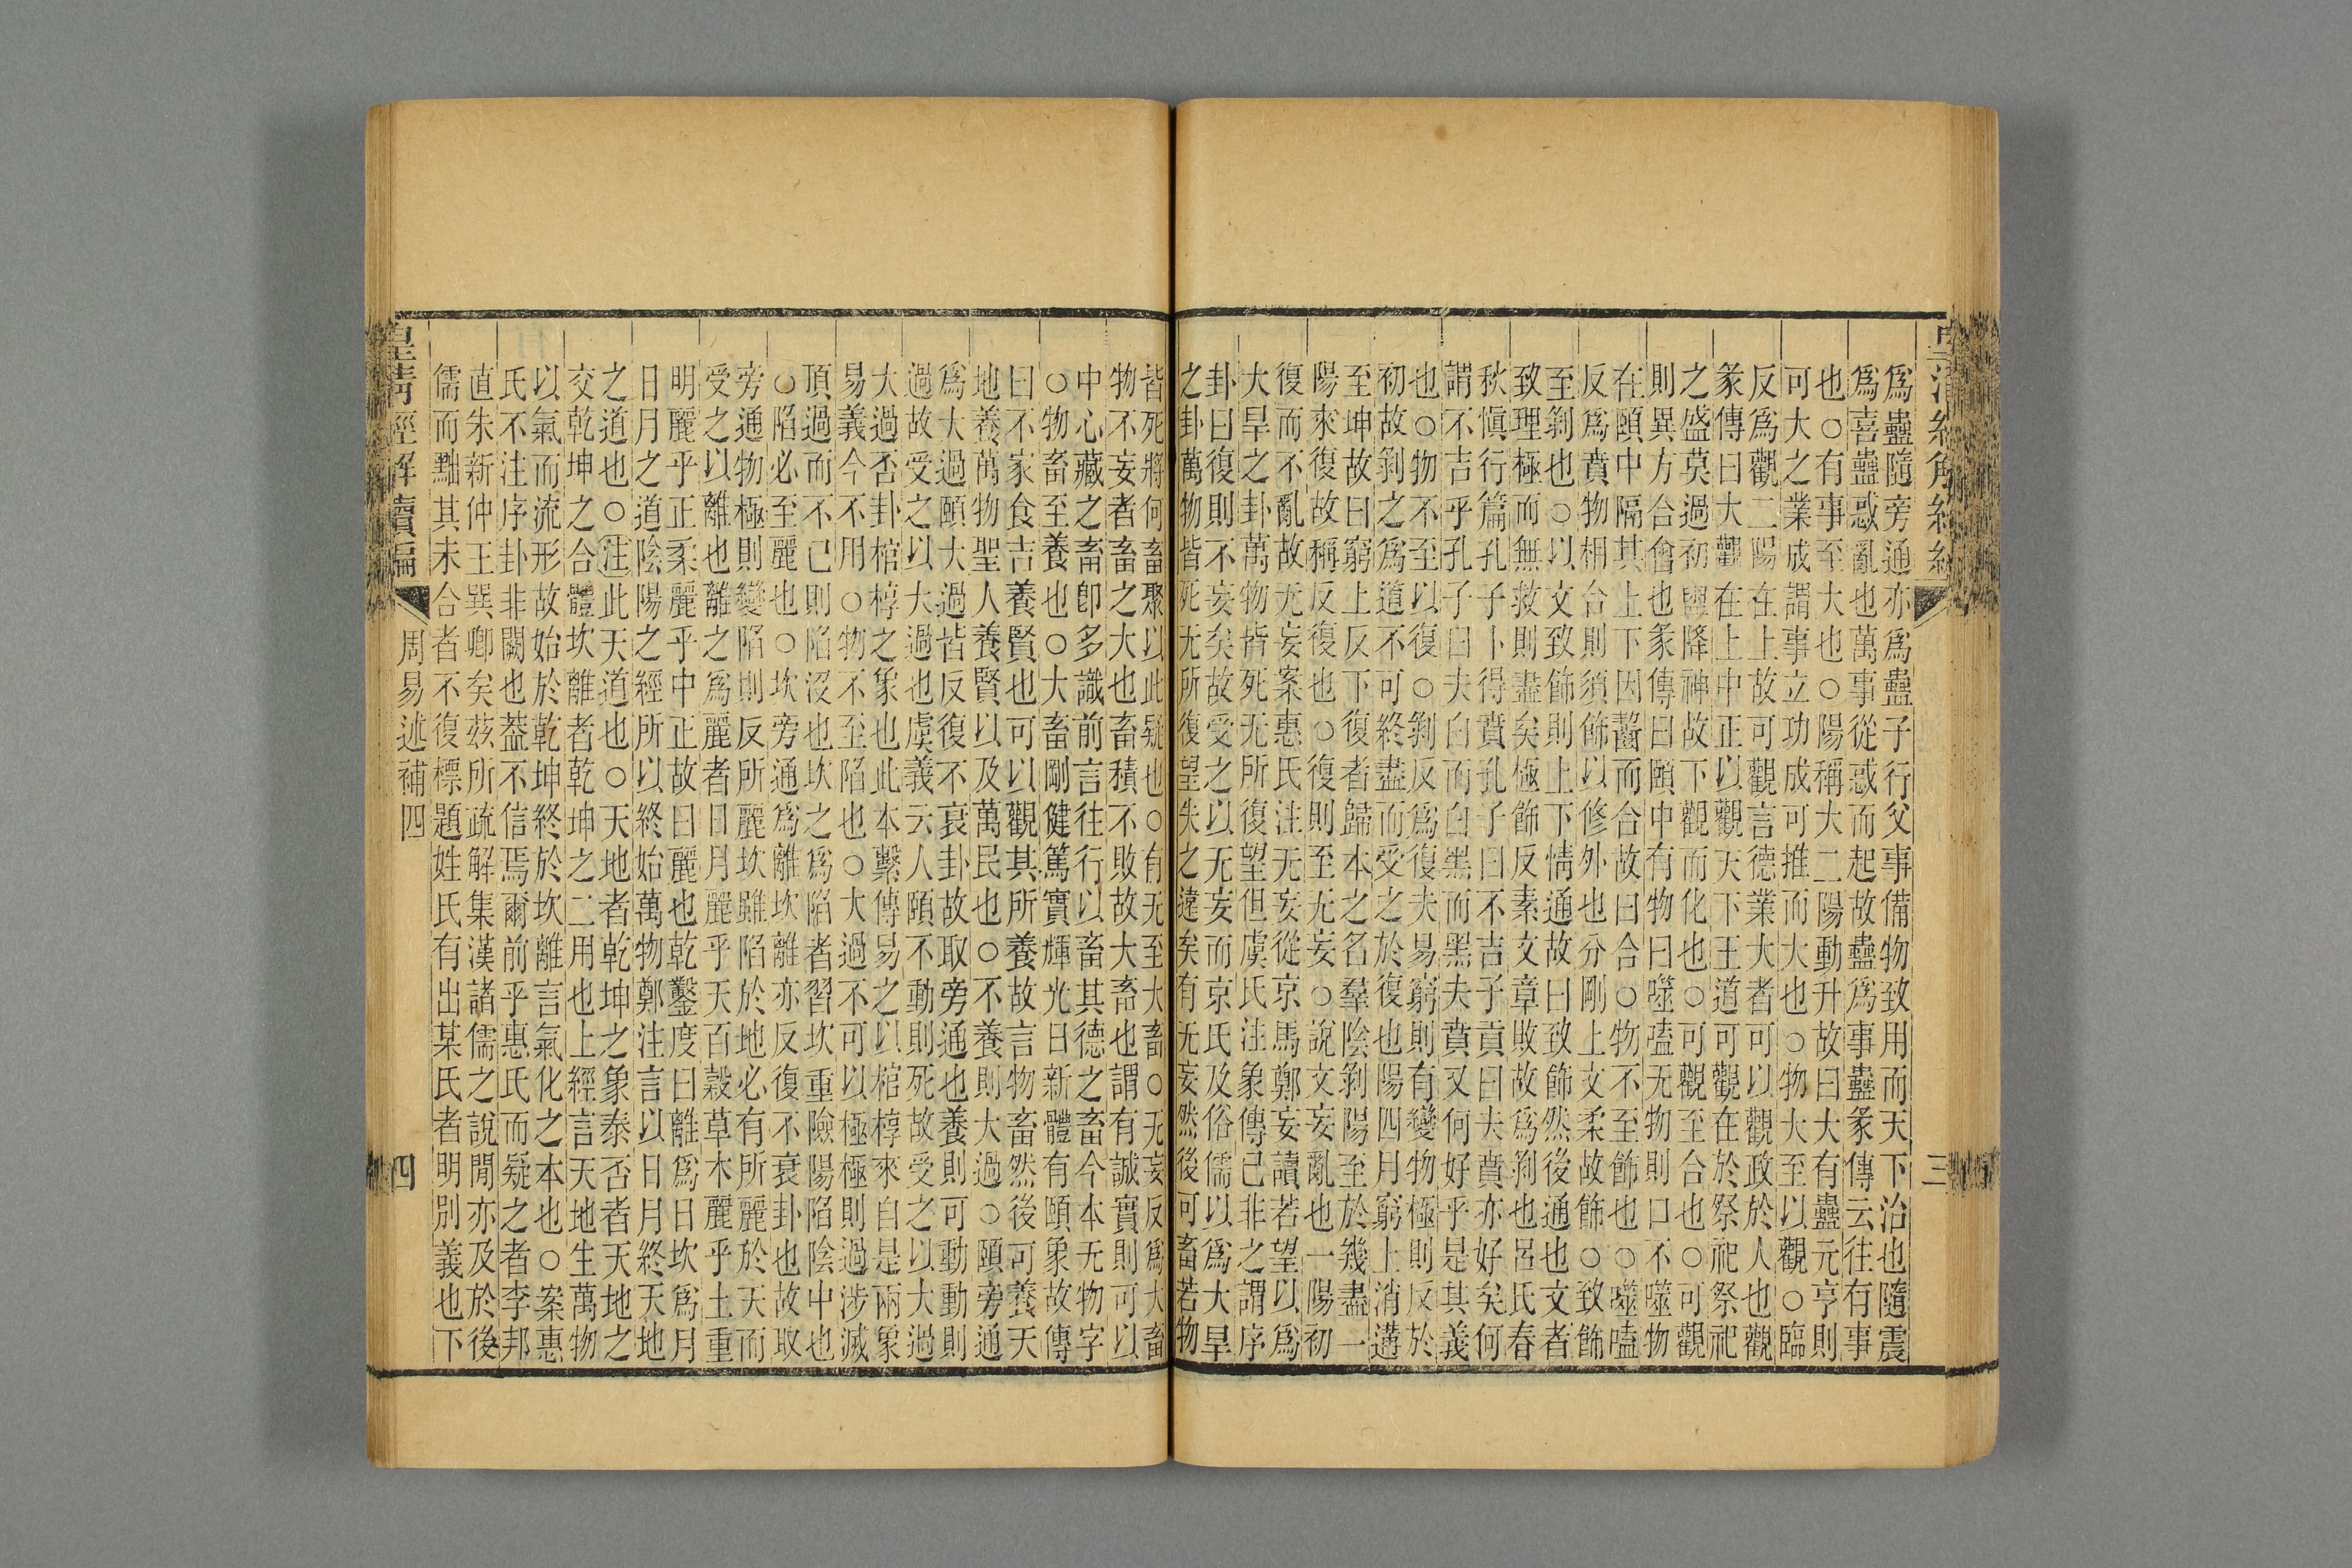 爲蠱隨旁通亦爲蠱子行父事備物致用而天下治也隨震
爲喜蠱惑亂也萬事從惑而起故蠱爲事蠱彖傳云往有事
也○有事至大也○陽稱大二陽動升故曰大有蠱元亨則
可大之業成謂事立功成可推而大也○物大至以觀○臨
反爲觀二陽在上故可觀言德業大者可以觀政於人也觀
彖傳曰大觀在上中正以觀天下王道可觀在於祭祀祭祀
之盛莫過初盥降神故下觀而化也○可觀至合也○可觀
則異方合會也彖傳曰頤中有物曰噬嗑无物則口不噬物
在頤中隔其上下因齧而合故曰合○物不至飾也○噬嗑
反爲賁物相合則須飾以修外也分剛上文柔故飾○致飾
至剝也○以文致飾則上下情通故曰致飾然後通也文者
致理極而無救則盡矣極飾反素文章敗故爲剝也呂氏春
秋愼行篇孔子卜得賁孔子曰不吉子貢曰夫賁亦好矣何
謂不吉乎孔子曰夫白而白黑而黑夫賁又何好乎是其義
也○物不至以復○剝反爲復夫易窮則有變物極則反於
初故剝之爲道不可終盡而受之於復也陽四月窮上消遘
至坤故曰窮上反下復者歸本之名羣陰剝陽至於幾盡一
陽來復故稱反復也○復則至无妄○說文妄亂也一陽初
復而不亂故无妄案惠氏注无妄從京馬鄭妄讀若望以爲
大旱之卦萬物皆死无所復望但虞氏注象傳已非之謂序
卦曰復則不妄矣故受之以无妄而京氏及俗儒以爲大旱
之卦萬物皆死无所復望失之遠矣有无妄然後可畜若物
皆死將何畜聚以此疑也○有无至大畜○无妄反爲大畜
物不妄者畜之大也畜積不敗故大畜也謂有誠實則可以
中心藏之畜卽多識前言往行以畜其德之畜今本无物字
○物畜至養也○大畜剛健篤實輝光日新體有頤象故傳
曰不家食吉養賢也可以觀其所養故言物畜然後可養天
地養萬物聖人養賢以及萬民也○不養則大過○頤旁通
爲大過頤大過皆反復不衰卦故取旁通也養則可動動則
過故受之以大過也虞義云人頤不動則死故受之以大過
大過否卦棺椁之象也此本繫傳易之以棺椁來自是兩象
易義今不用○物不至陷也○大過不可以極極則過涉滅
頂過而不已則陷沒也坎之爲陷者習坎重險陽陷陰中也
○陷必至麗也○坎旁通爲離坎離亦反復不衰卦也故取
旁通物極則變陷則反所麗坎雖陷於地必有所麗於天而
受之以離也離之爲麗者日月麗乎天百穀草木麗乎土重
明麗乎正柔麗乎中正故曰麗也乾鑿度曰離爲日坎爲月
日月之道陰陽之經所以終始萬物鄭注言以日月終天地
之道也○注此天道也○天地者乾坤之象泰否者天地之
交乾坤之合體坎離者乾坤之二用也上經言天地生萬物
以氣而流形故始於乾坤終於坎離言氣化之本也○案惠
氏不注序卦非闕也葢不信焉爾前乎惠氏而疑之者李邦
直朱新仲王巽卿矣茲所疏解集漢諸儒之說閒亦及於後
儒而黜其未合者不復標題姓氏有出某氏者明別義也下
皇淸經解續編
周易述補四
三
四